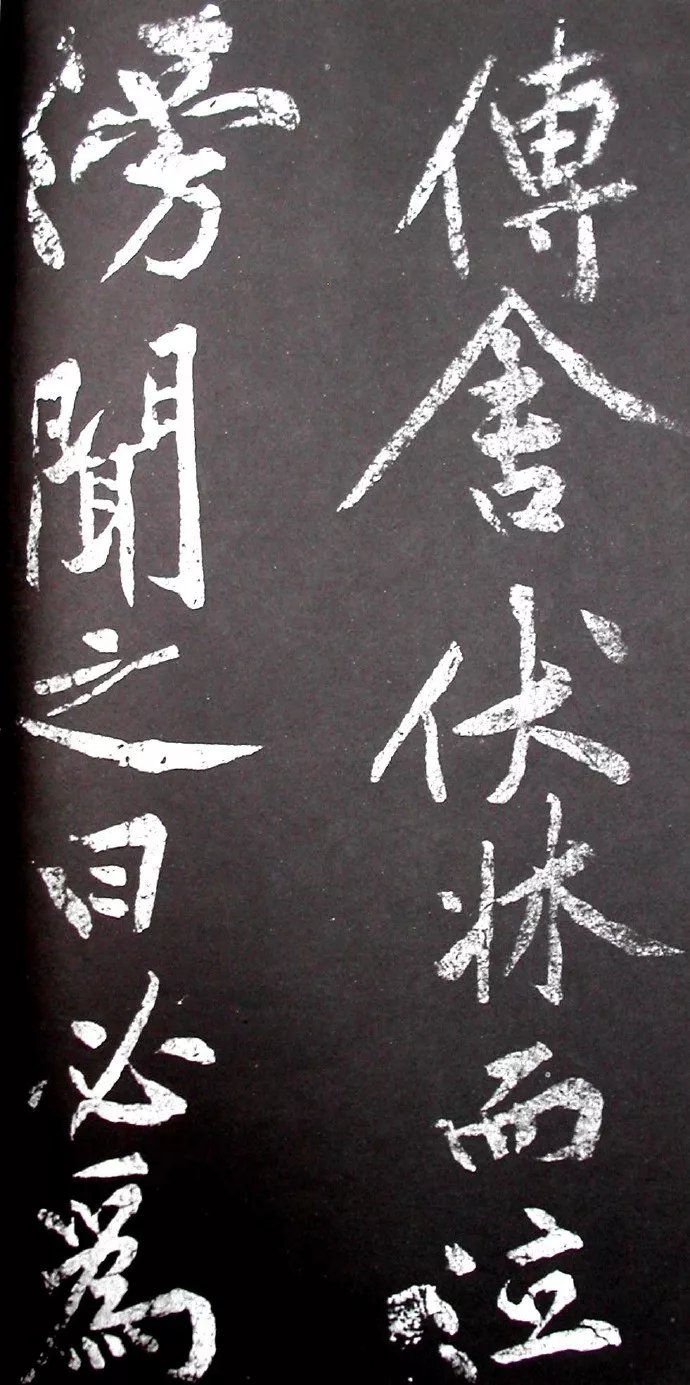 傳舍伏牀而泣
傍聞之曰必為